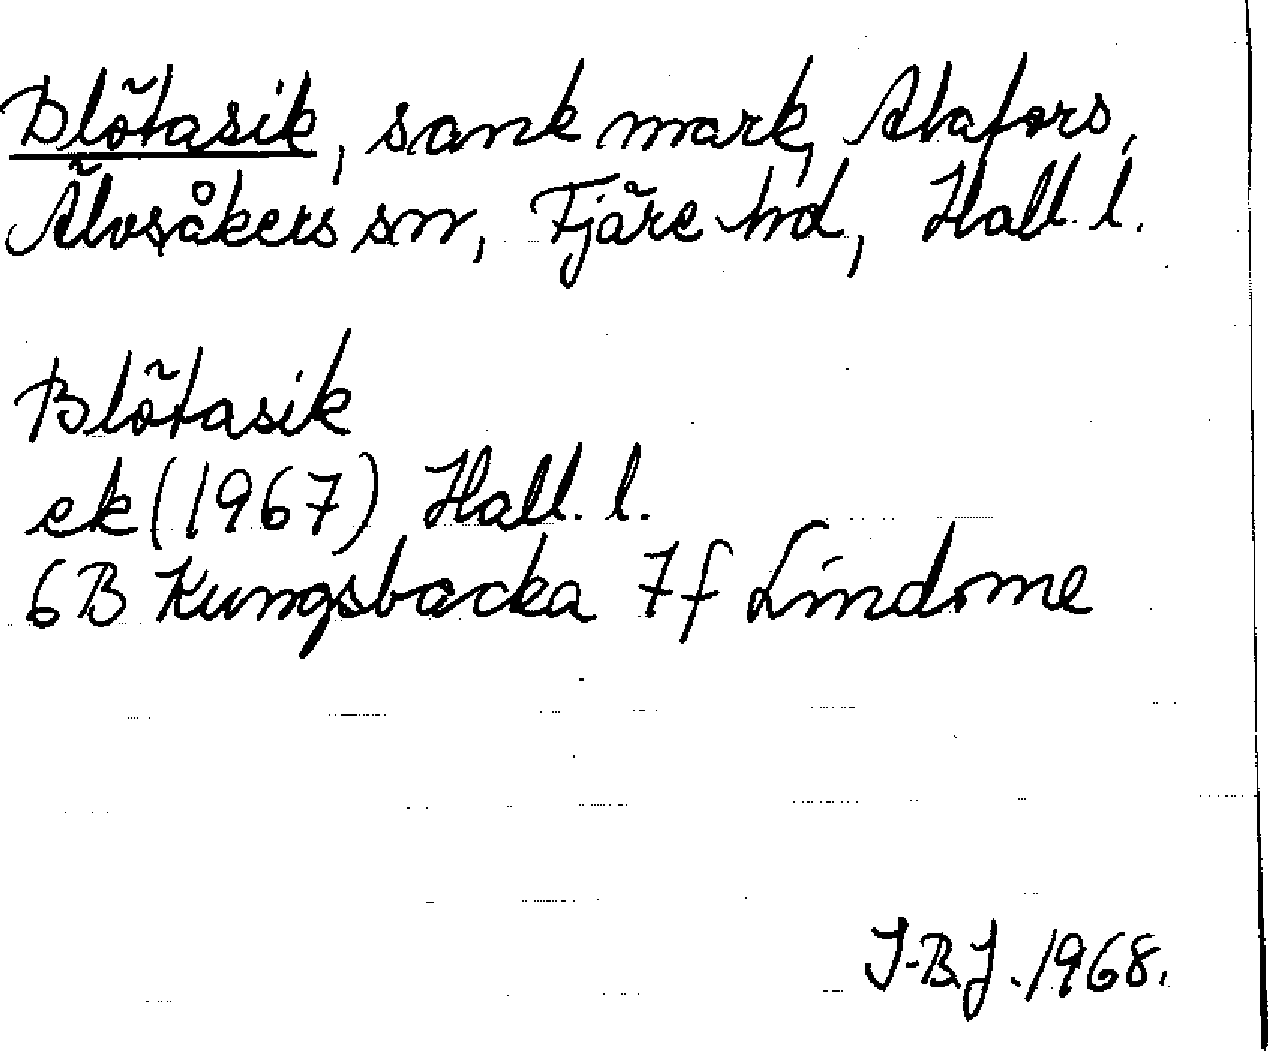 Blötasik, sank mark, Alafors,
Älvsåkers sn, Fjäre hd, Hall. l.
Blötasik
ek (1967) Hall. l.
6B Kungsbacka 7f Lindome
I-B.J. 1968.